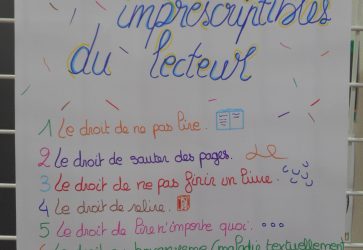 imprescriptibles
du lecteur
1 Le droit de ne pas lire.
2 Le droit de sauter des pages.
3 Le droit de ne pas finir un livre.
4 Le droit de relire.
5 Le droit de lire n'importe quoi.
6 Le droit au bovarysme (maladie textuellement